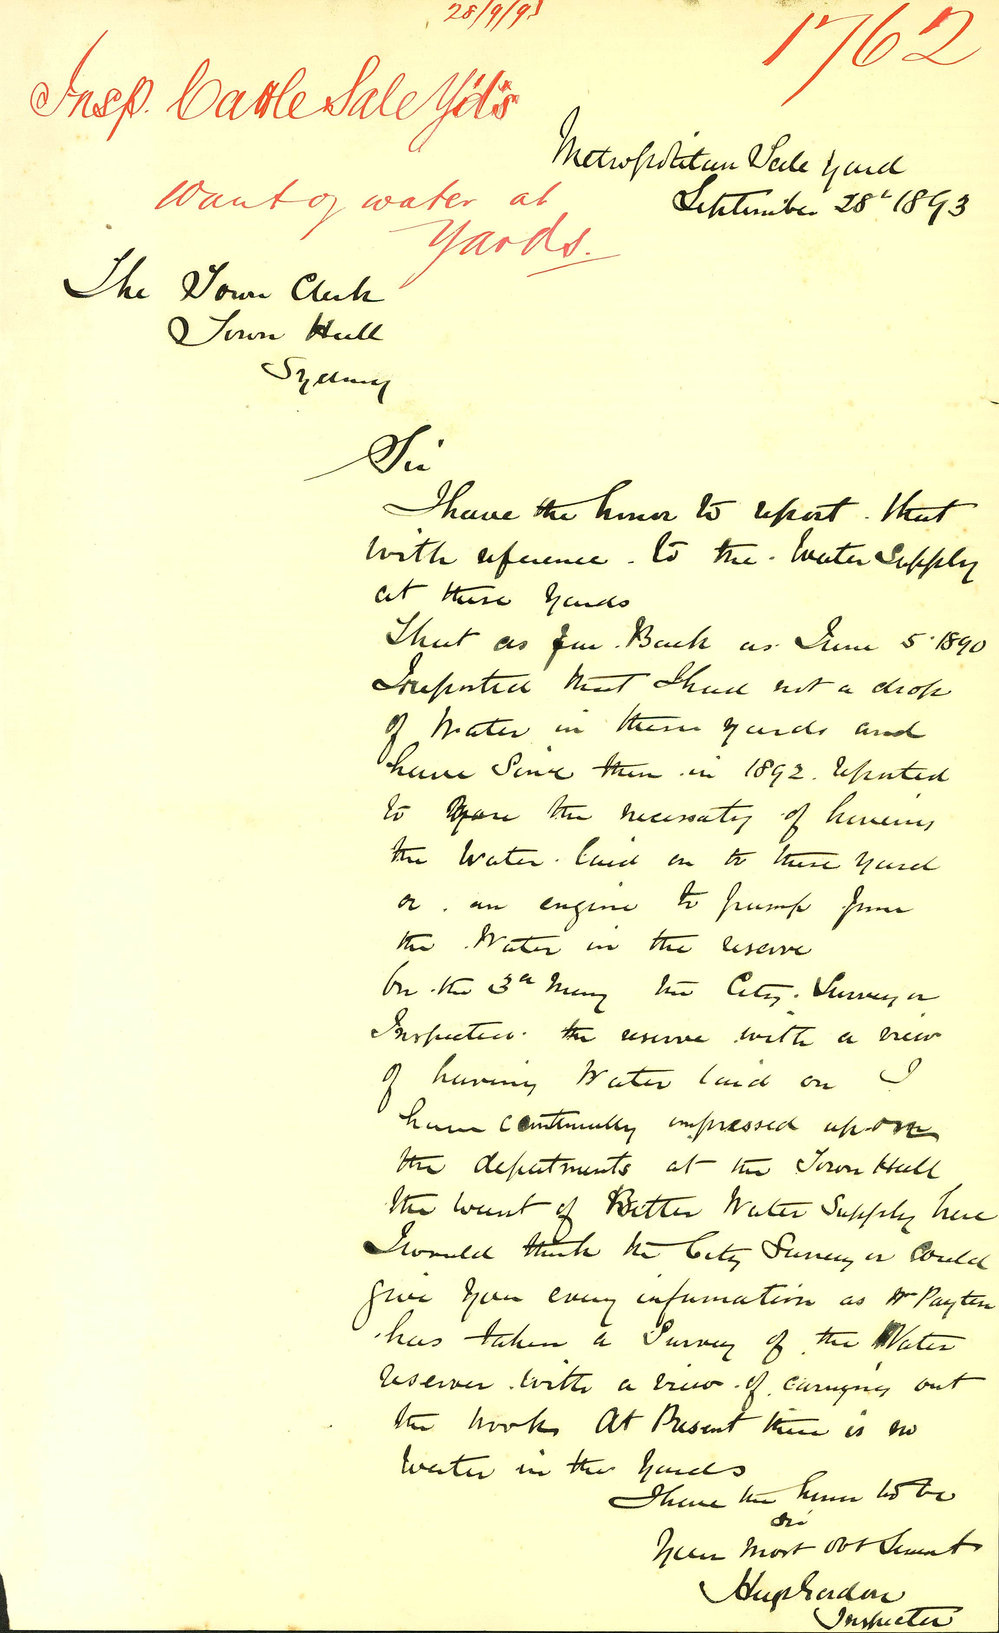 28/9/93
1762
Insp. Cattle Sale Yds
Want of water at
Yards.
Metropolitan Sale Yard
September 28th 1893
The Town Clerk
Town Hall
Sydney
Sir
I have the honor to report that
with reference to the Water Supply
at these Yards
That as far Back as June 5 1890
I reported that I had not a drop
of Water in these yards and
have Since then in 1892 reported
to you the necessaty of having
the Water laid on to these yard
or an engine to pump from
the Water in the reserve
On the 3rd May the City Surveyor
Inspected the reserve with a view
of having Water laid on I
have continually impressed upon
the departments at the Town Hall
the want of Better Water Supply here
I would think the City Surveyor Could
give you every information as Mr Payten
has taken a Survey of the Water
reserve with a view of carrying out
the works At Present there is no
Water in the Yards
I have the honor to be
Sir
Your most obt Servant
Hugh Gordon
Inspector